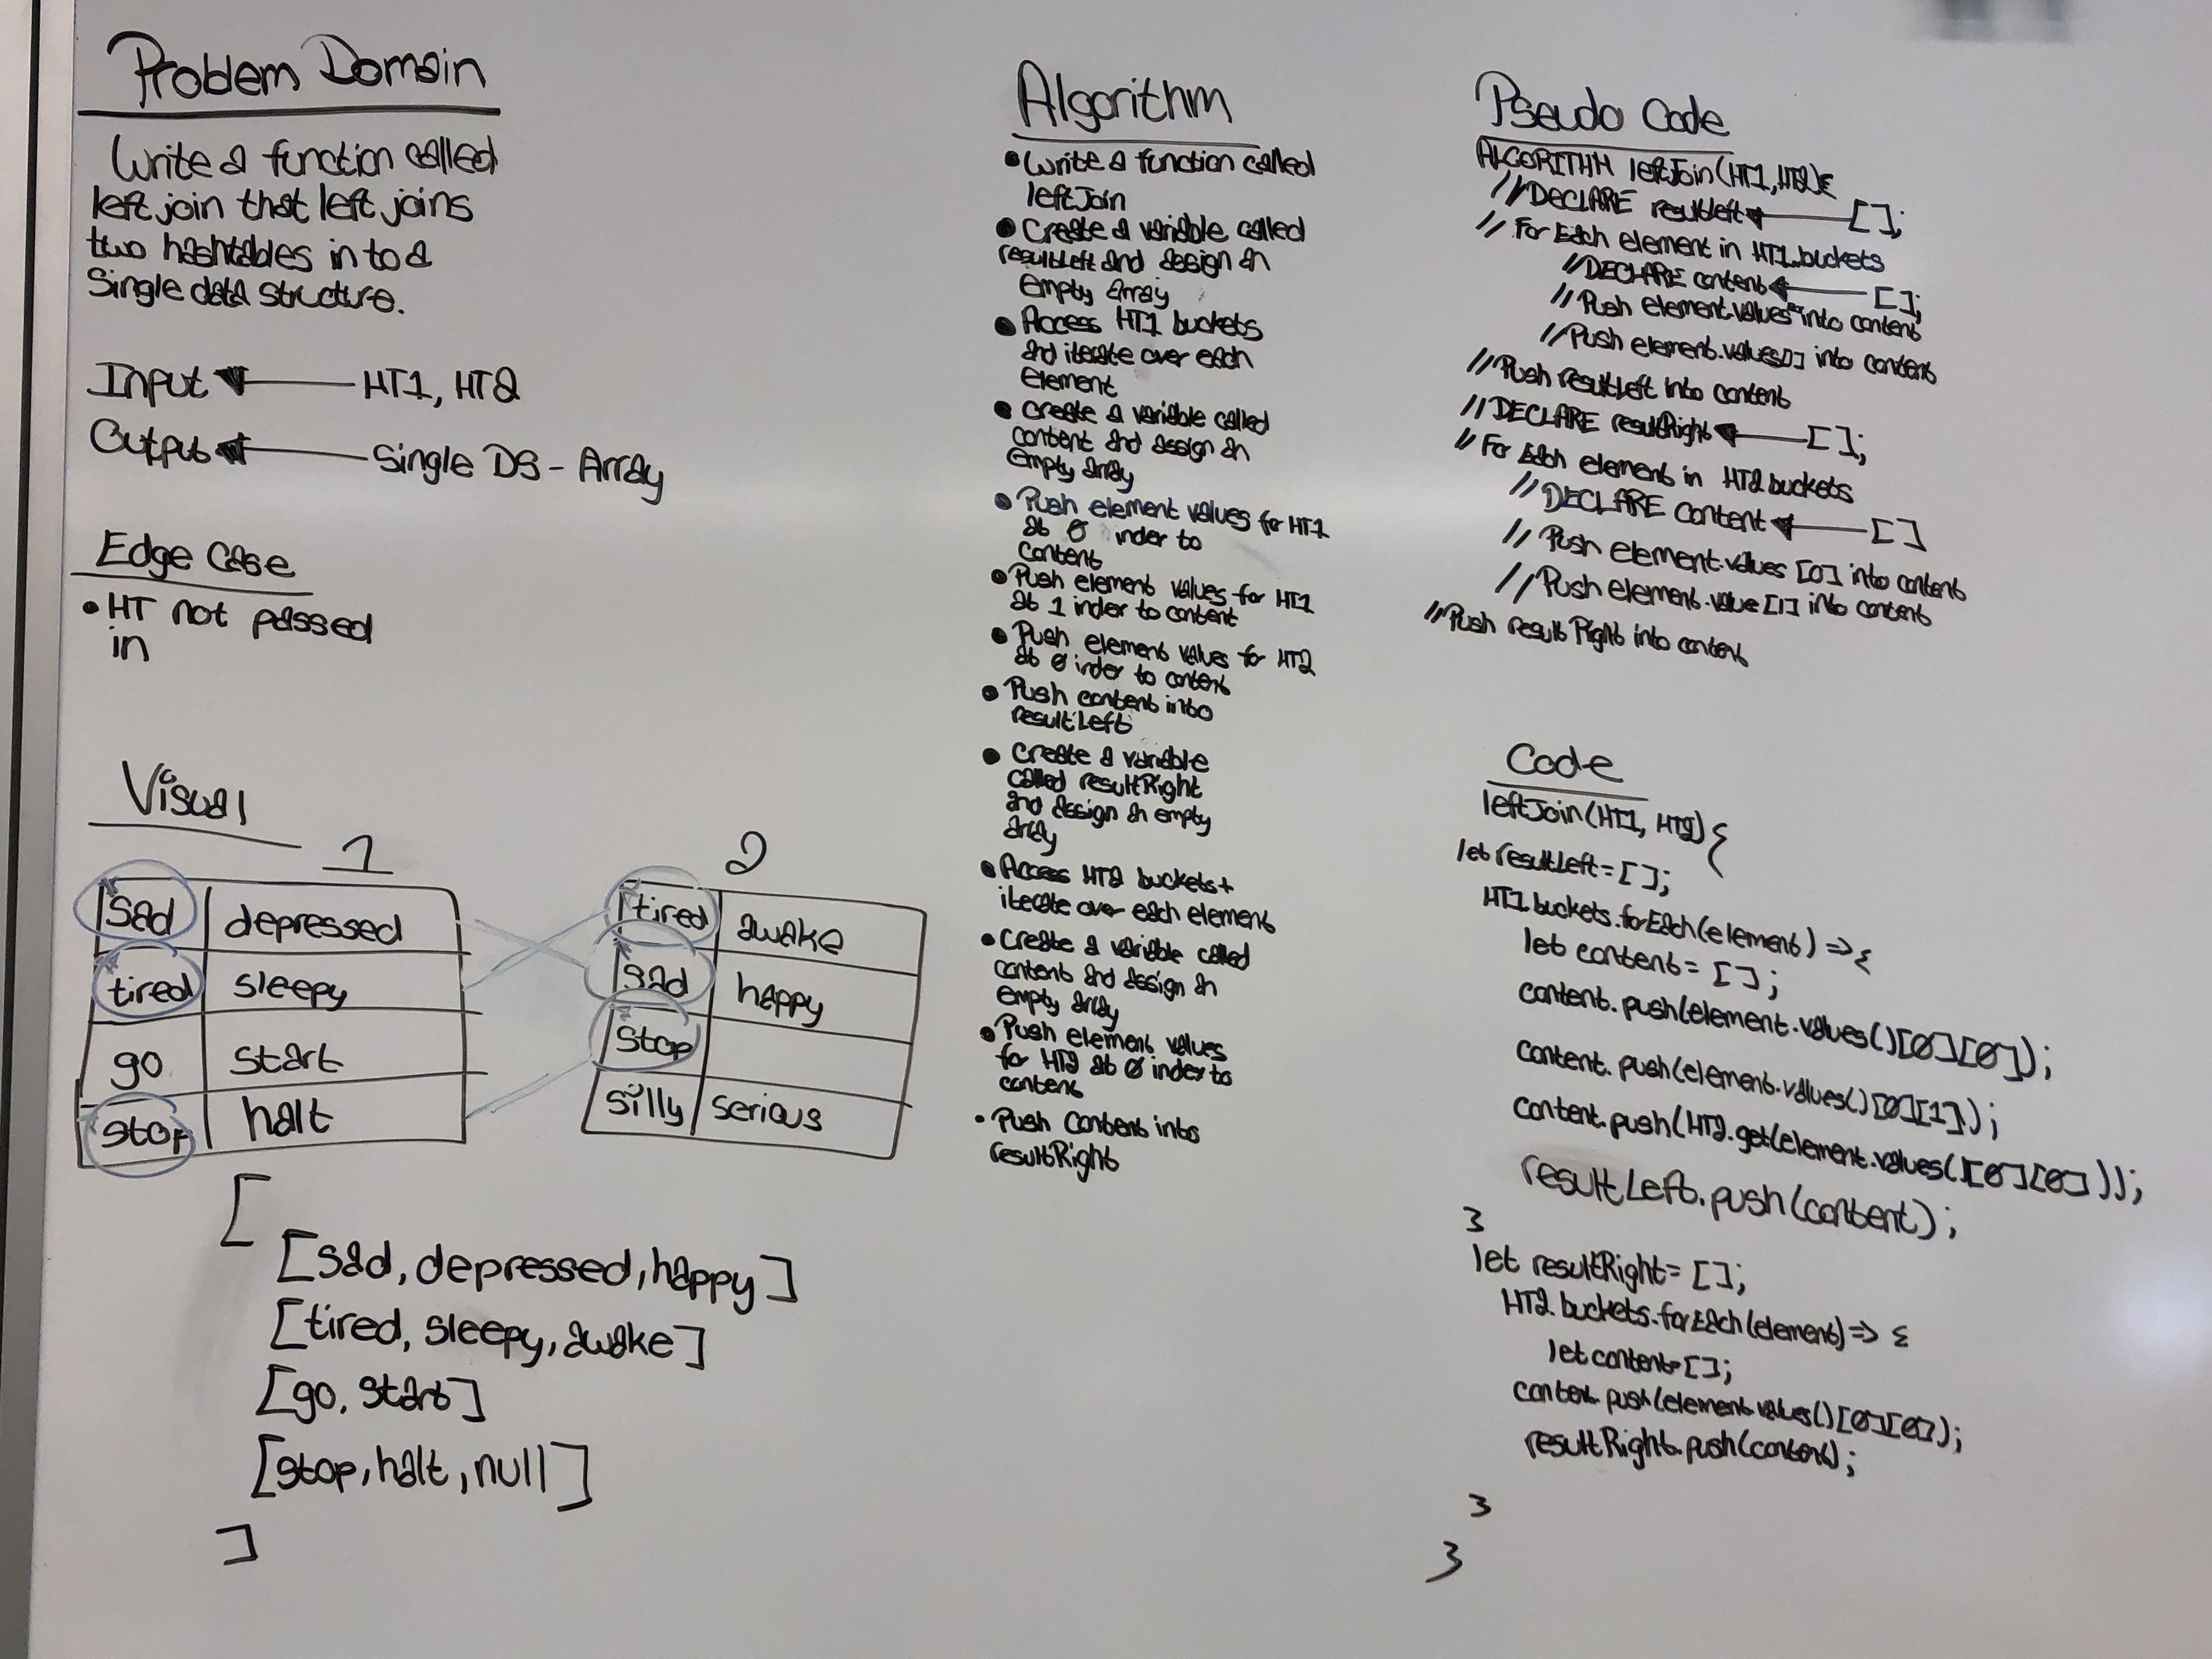 Problem Domain
Write a function called
left join that left joins
two hashtables in to a
Single data structure.
Input ← HT1, HT2
Output ← Single DS - Array
Edge Case
• HT not passed
in
Visual
1
sad depressed
tired sleepy
go start
stop halt
2
tired awake
sad happy
stop
silly serious
[
[sad, depressed, happy]
[tired, sleepy, awake]
[go, start]
[stop, halt, null]
]
Algorithm
• Write a function called
leftJoin
• Create a variable called
resultLeft and assign an
empty array
• Access HT1 buckets
and iterate over each
element
• Create a variable called
content and assign an
empty array
• Push element values for HT1
at 0 index to
content
• Push element values for HT1
at 1 index to content
• Push element values for HT2
at 0 index to content
• Push content into
resultLeft
• Create a variable
called resultRight
and assign an empty
array
• Access HT2 buckets +
iterate over each element
• Create a variable called
content and assign an
empty array
• Push element values
for HT2 at 0 index to
content
• Push content into
resultRight
Pseudo Code
ALGORITHM leftJoin(HT1, HT2){
// DECLARE resultLeft ← [];
// For Each element in HT1.buckets
// DECLARE content ← [];
// Push element.values into content
// Push element.values[1] into content
// Push resultLeft into content
// DECLARE resultRight ← [];
// For Each element in HT2 buckets
// DECLARE content ← []
// Push element.values [0] into content
// Push element.value [1] into content
// Push resultRight into content
Code
leftJoin(HT1, HT2) {
let resultLeft = [];
HT1.buckets.forEach(element) => {
let content = [];
content.push(element.values()[0][0]);
content.push(element.values()[0][1]);
content.push(HT2.get(element.values()[0][0]));
resultLeft.push(content);
}
let resultRight = [];
HT2.buckets.forEach(element) => {
let content = [];
content.push(element.values()[0][0]);
resultRight.push(content);
}
}